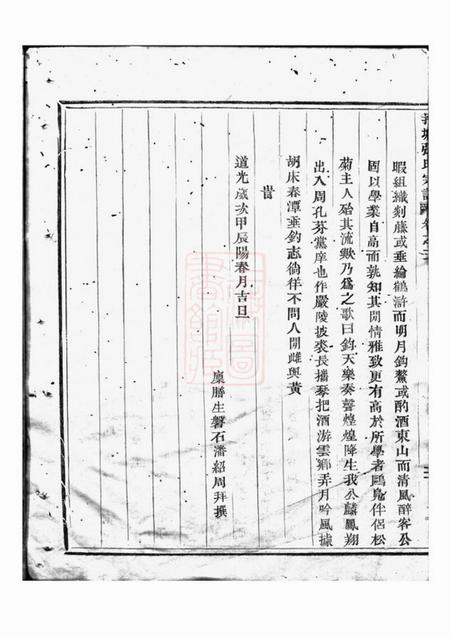 暇組織剡藤或垂綸鶴滸而明月鈎鰲或酌酒東山而清風醉客公
固以學業自高而孰知其閒情雅致更有高於所學者鷗鳧伴侶松
菊主人殆其流歟乃為之歌曰鈞天樂奏聲煌煌降生我公麟鳳翔
出入周孔芬黨庠也作嚴陵披裘長播琴把酒游雲鄉弄月吟風據
胡床春潭垂釣志徜徉不問人間雌與黃
旹
道光歲次甲辰陽春月吉旦
廩膳生磐石潘紹周拜撰
氏宗譜